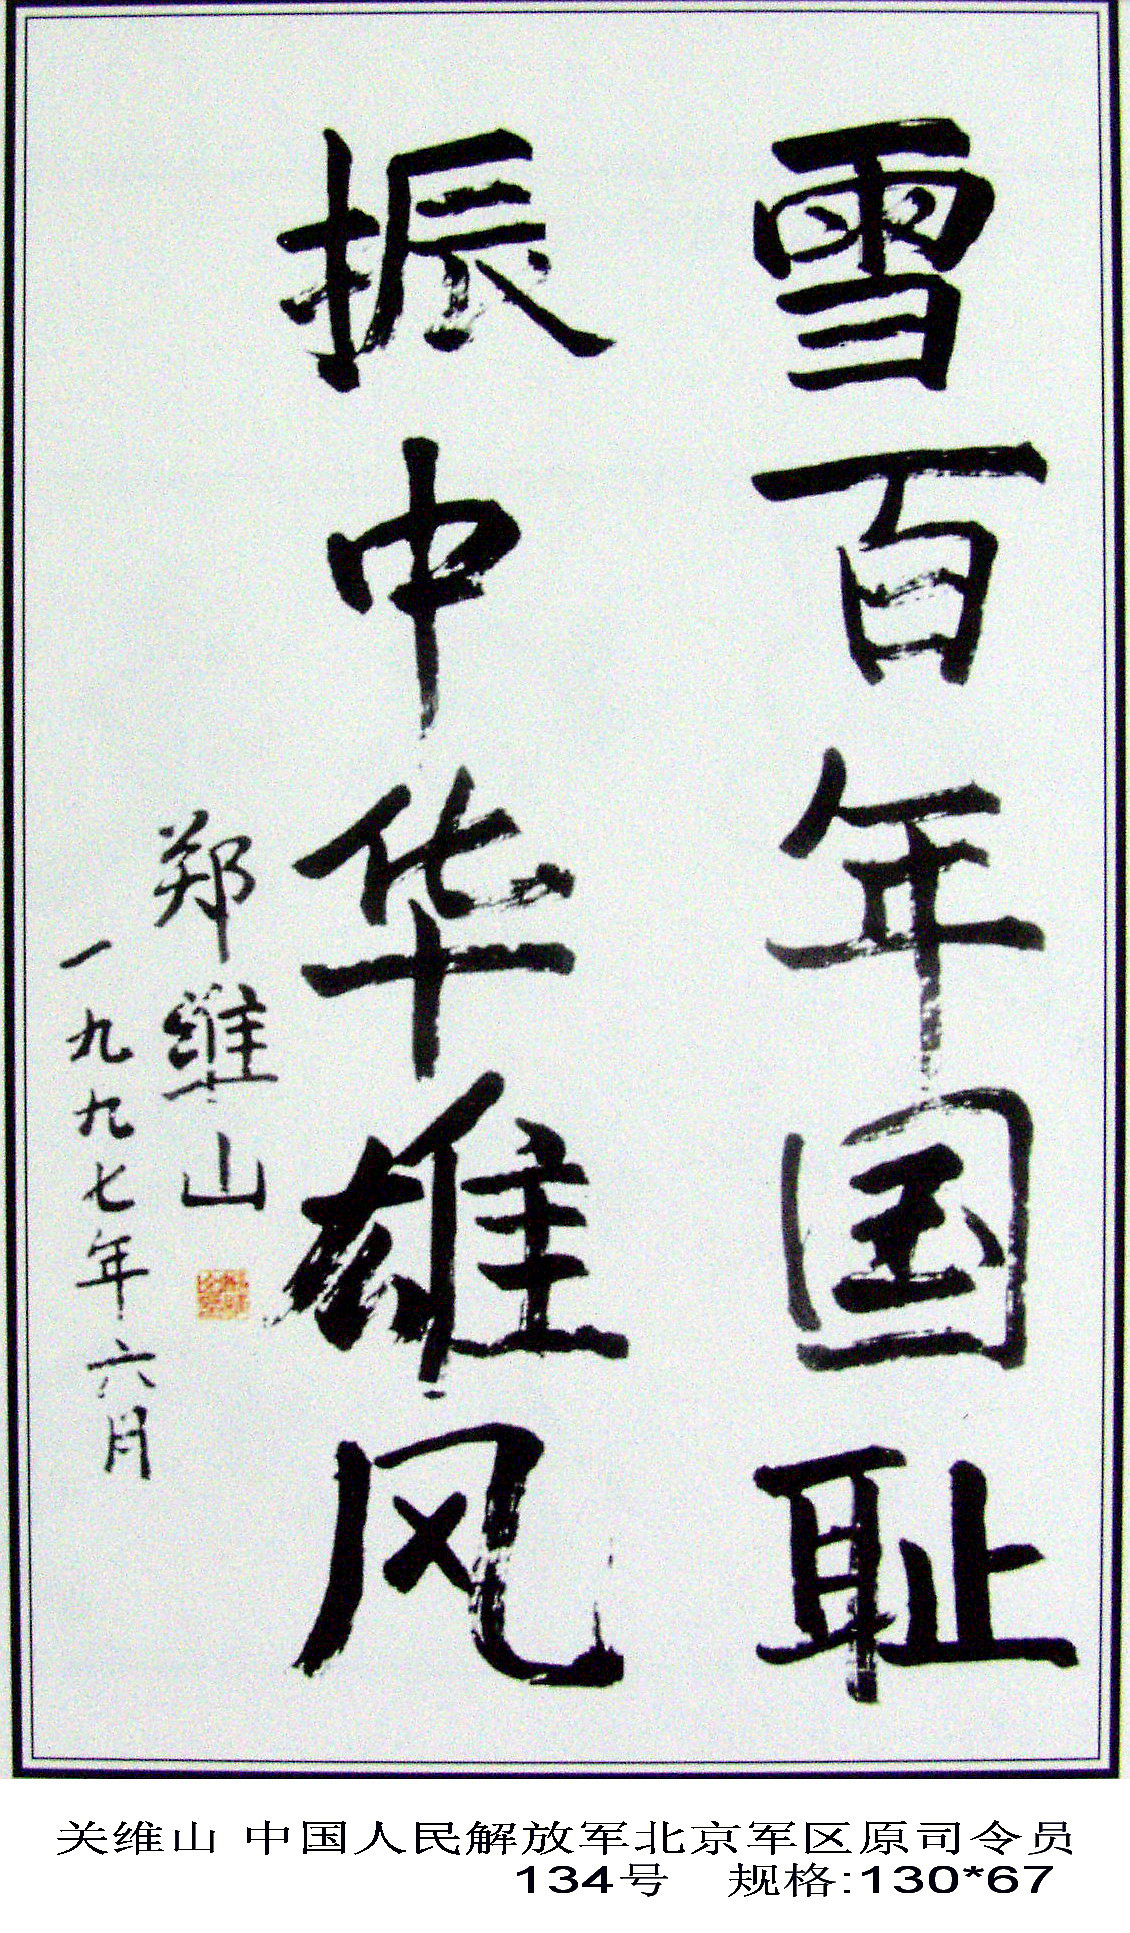 雪百年国耻
振中华雄风
郑维山
一九九七年六月
关维山 中国人民解放军北京军区原司令员
134号 规格:130*67